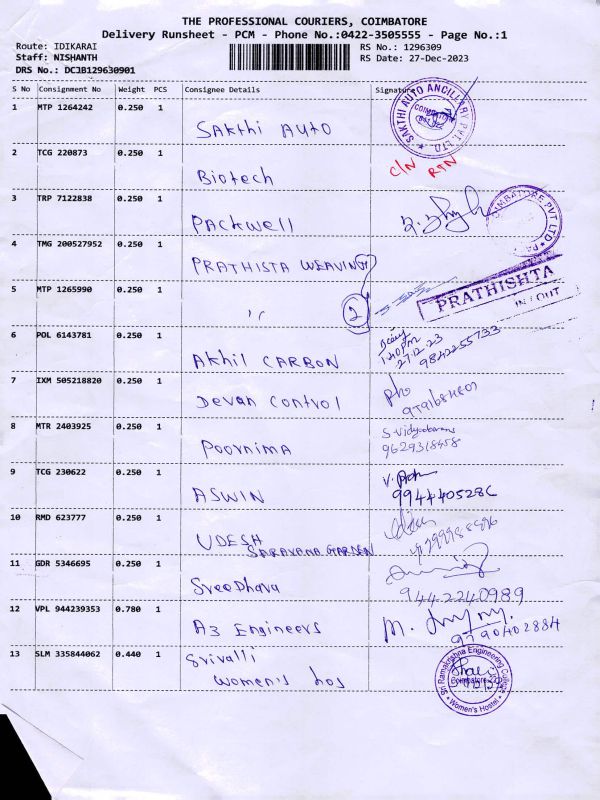 THE PROFESSIONAL COURIERS, COIMBATORE
Delivery Runsheet - PCM - Phone No.:0422-3505555 - Page No.:1
Route: IDIKARAI
Staff: NISHANTH
DRS No.: DCJB129630901
RS No.: 1296309
RS Date: 27-Dec-2023
S No Consignment No Weight PCS Consignee Details Signature
1 MTP 1264242 0.250 1
SAkthi AUTO
SAKTHI AUTO ANCILLARY PVT. LTD
2 TCG 220873 0.250 1
Biotech
C/N RTN
3 TRP 7122838 0.250 1
PACKWELL
4 TMG 200527952 0.250 1
PRATHISTA WEAVING
PRATHISHTA
IN / OUT
5 MTP 1265990 0.250 1
2
6 POL 6143781 0.250 1
AKhil CARBON
1.40PM
27.12.23
9842255733
7 IXM 505218820 0.250 1
Devan Control
8 MTR 2403925 0.250 1
POORNIMA
9629318458
9 TCG 230622 0.250 1
ASWIN
994440528
10 RMD 623777 0.250 1
UDESH
SARAVANA GARDEN
11 GDR 5346695 0.250 1
SreeDhara
9442240989
12 VPL 944239353 0.780 1
A3 Engineers
9790402884
13 SLM 335844062 0.440 1
Srivalli
Women's hos
Sri Ramakrishna Engineering College
Women's Hostel